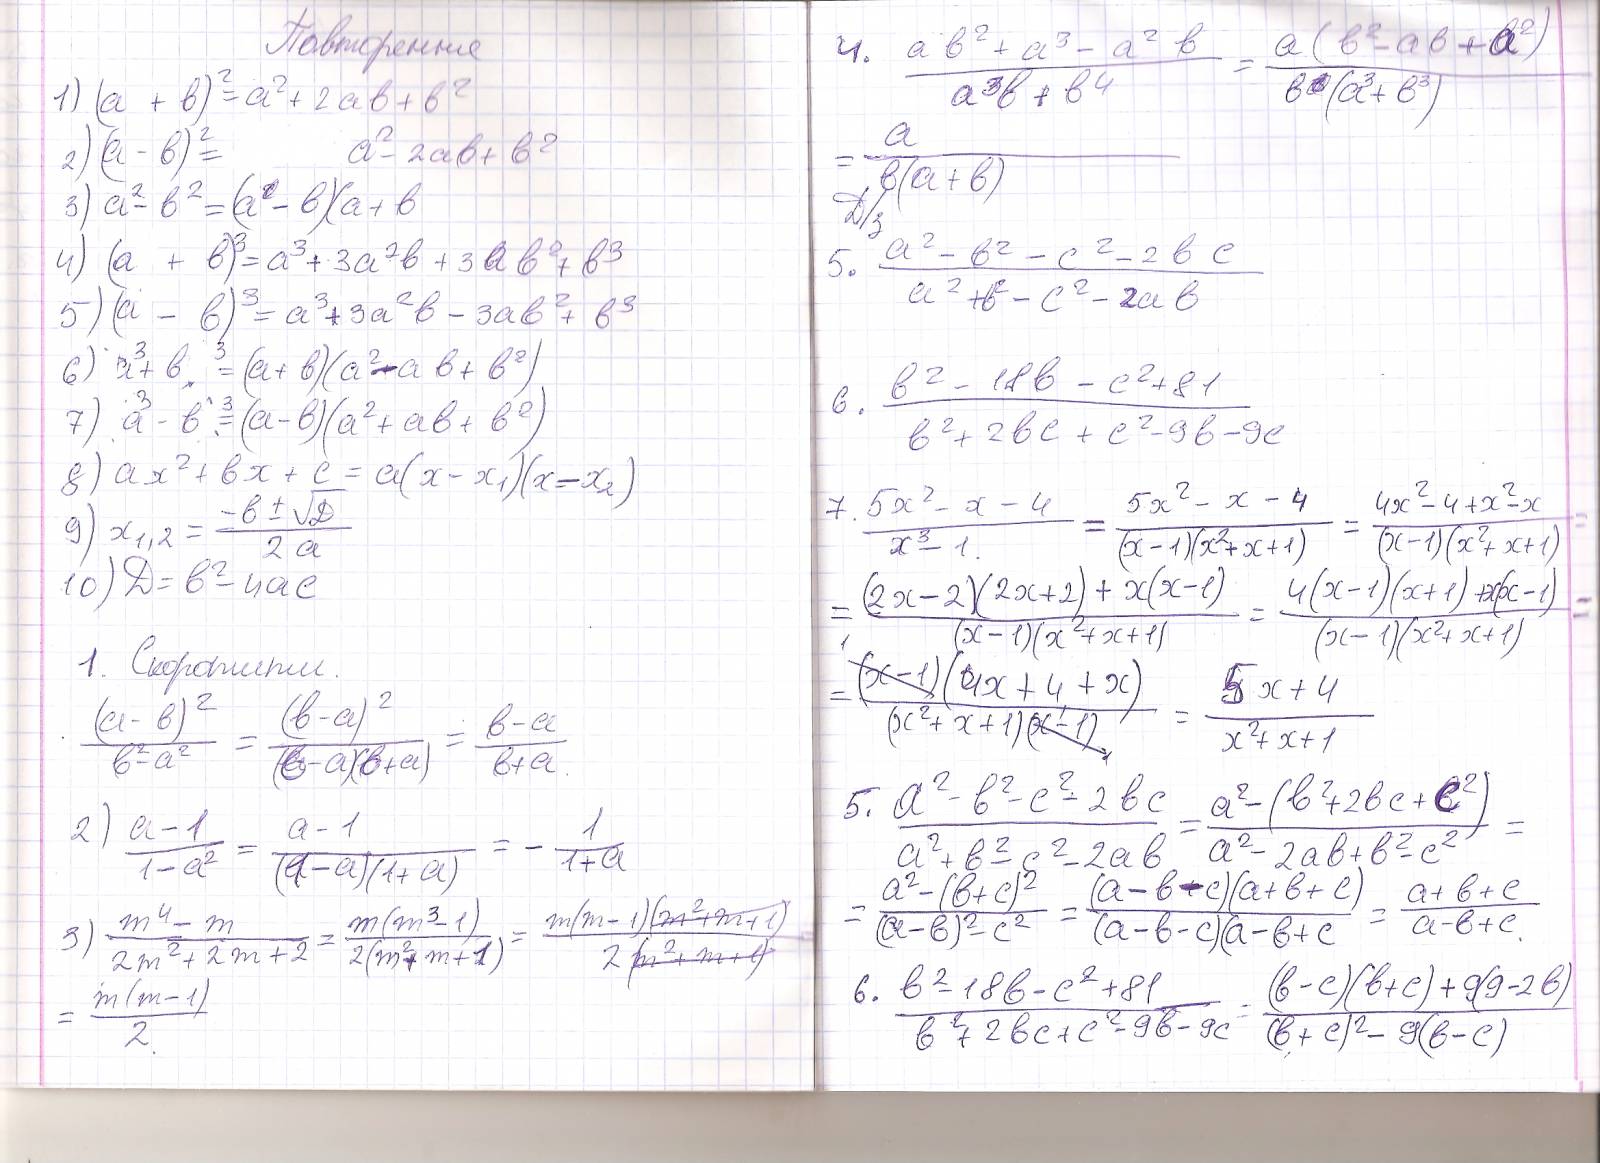 Повторение
1) (a + b)² = a² + 2ab + b²
2) (a - b)² = a² - 2ab + b²
3) a² - b² = (a - b)(a + b
4) (a + b)³ = a³ + 3a²b + 3ab² + b³
5) (a - b)³ = a³ + 3a²b - 3ab² + b³
6) a³ + b³ = (a + b)(a² - ab + b²)
7) a³ - b³ = (a - b)(a² + ab + b²)
8) ax² + bx + c = a(x - x₁)(x - x₂)
9) x₁,₂ = (-b ± √D) / 2a
10) D = b² - 4ac
1. Скоротити.
(a - b)² / b² - a² = (b - a)² / (b - a)(b + a) = b - a / b + a.
2) a - 1 / 1 - a² = a - 1 / (1 - a)(1 + a) = - 1 / 1 + a
3) m⁴ - m / 2m² + 2m + 2 = m(m³ - 1) / 2(m² + m + 1) = m(m - 1)(m² + m + 1) / 2(m² + m + 1) =
= m(m - 1) / 2.
4. ab² + a³ - a²b / a³b + b⁴ = a(b² - ab + a²) / b(a³ + b³)
= a / b(a + b)
Д/з
5. a² - b² - c² - 2bc / a² + b² - c² - 2ab
6. b² - 18b - c² + 81 / b² + 2bc + c² - 9b - 9c
7. 5x² - x - 4 / x³ - 1. = 5x² - x - 4 / (x - 1)(x² + x + 1) = 4x² - 4 + x² - x / (x - 1)(x² + x + 1) =
= (2x - 2)(2x + 2) + x(x - 1) / (x - 1)(x² + x + 1) = 4(x - 1)(x + 1) + x(x - 1) / (x - 1)(x² + x + 1) =
= (x - 1)(4x + 4 + x) / (x² + x + 1)(x - 1) = 5x + 4 / x² + x + 1
5. a² - b² - c² - 2bc / a² + b² - c² - 2ab = a² - (b² + 2bc + c²) / a² - 2ab + b² - c² =
= a² - (b + c)² / (a - b)² - c² = (a - b - c)(a + b + c) / (a - b - c)(a - b + c = a + b + c / a - b + c.
6. b² - 18b - c² + 81 / b² + 2bc + c² - 9b - 9c = (b - c)(b + c) + 9(9 - 2b) / (b + c)² - 9(b - c)